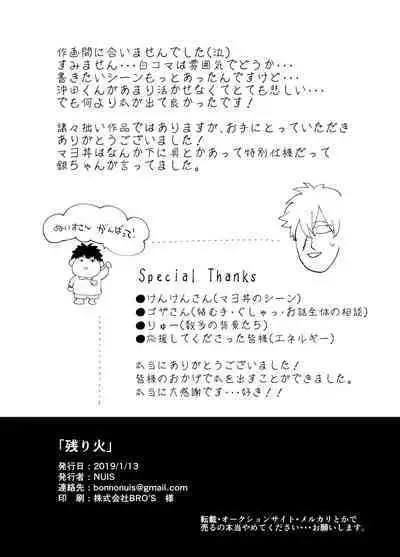 作画間に合いませんでした(泣)
すみません・・・白コマは雰囲気でどうか・・・
書きたいシーンもっとあったんですけど・・・
沖田くんがあまり活かせなくてとても悲しい・・・
でも何より本が出て良かったです!
諸々拙い作品ではありますが、お手にとっていただき
ありがとうございます!
マヨ丼はなんか下に具とかあって特別仕様だって
銀ちゃんが言ってました。
ぬいすさ〜ん がんばって!
Special Thanks
●けんけんさん(マヨ丼のシーン)
●ゴザさん(絡む手・ぐしゃっ・お話全体の相談)
●りゅー(数多の背景たち)
●応援してくださった皆様(エネルギー)
本当にありがとうございました!
皆様のおかげで本を出すことができました。
本当に大感謝です・・・好き!!
「残り火」
発行日:2019/1/13
発行者:NUIS
連絡先:bonnonuis@gmail.com
印 刷:株式会社BRO'S 様
転載・オークションサイト・メルカリとかで
売るの本当やめてください・・・お願いします。